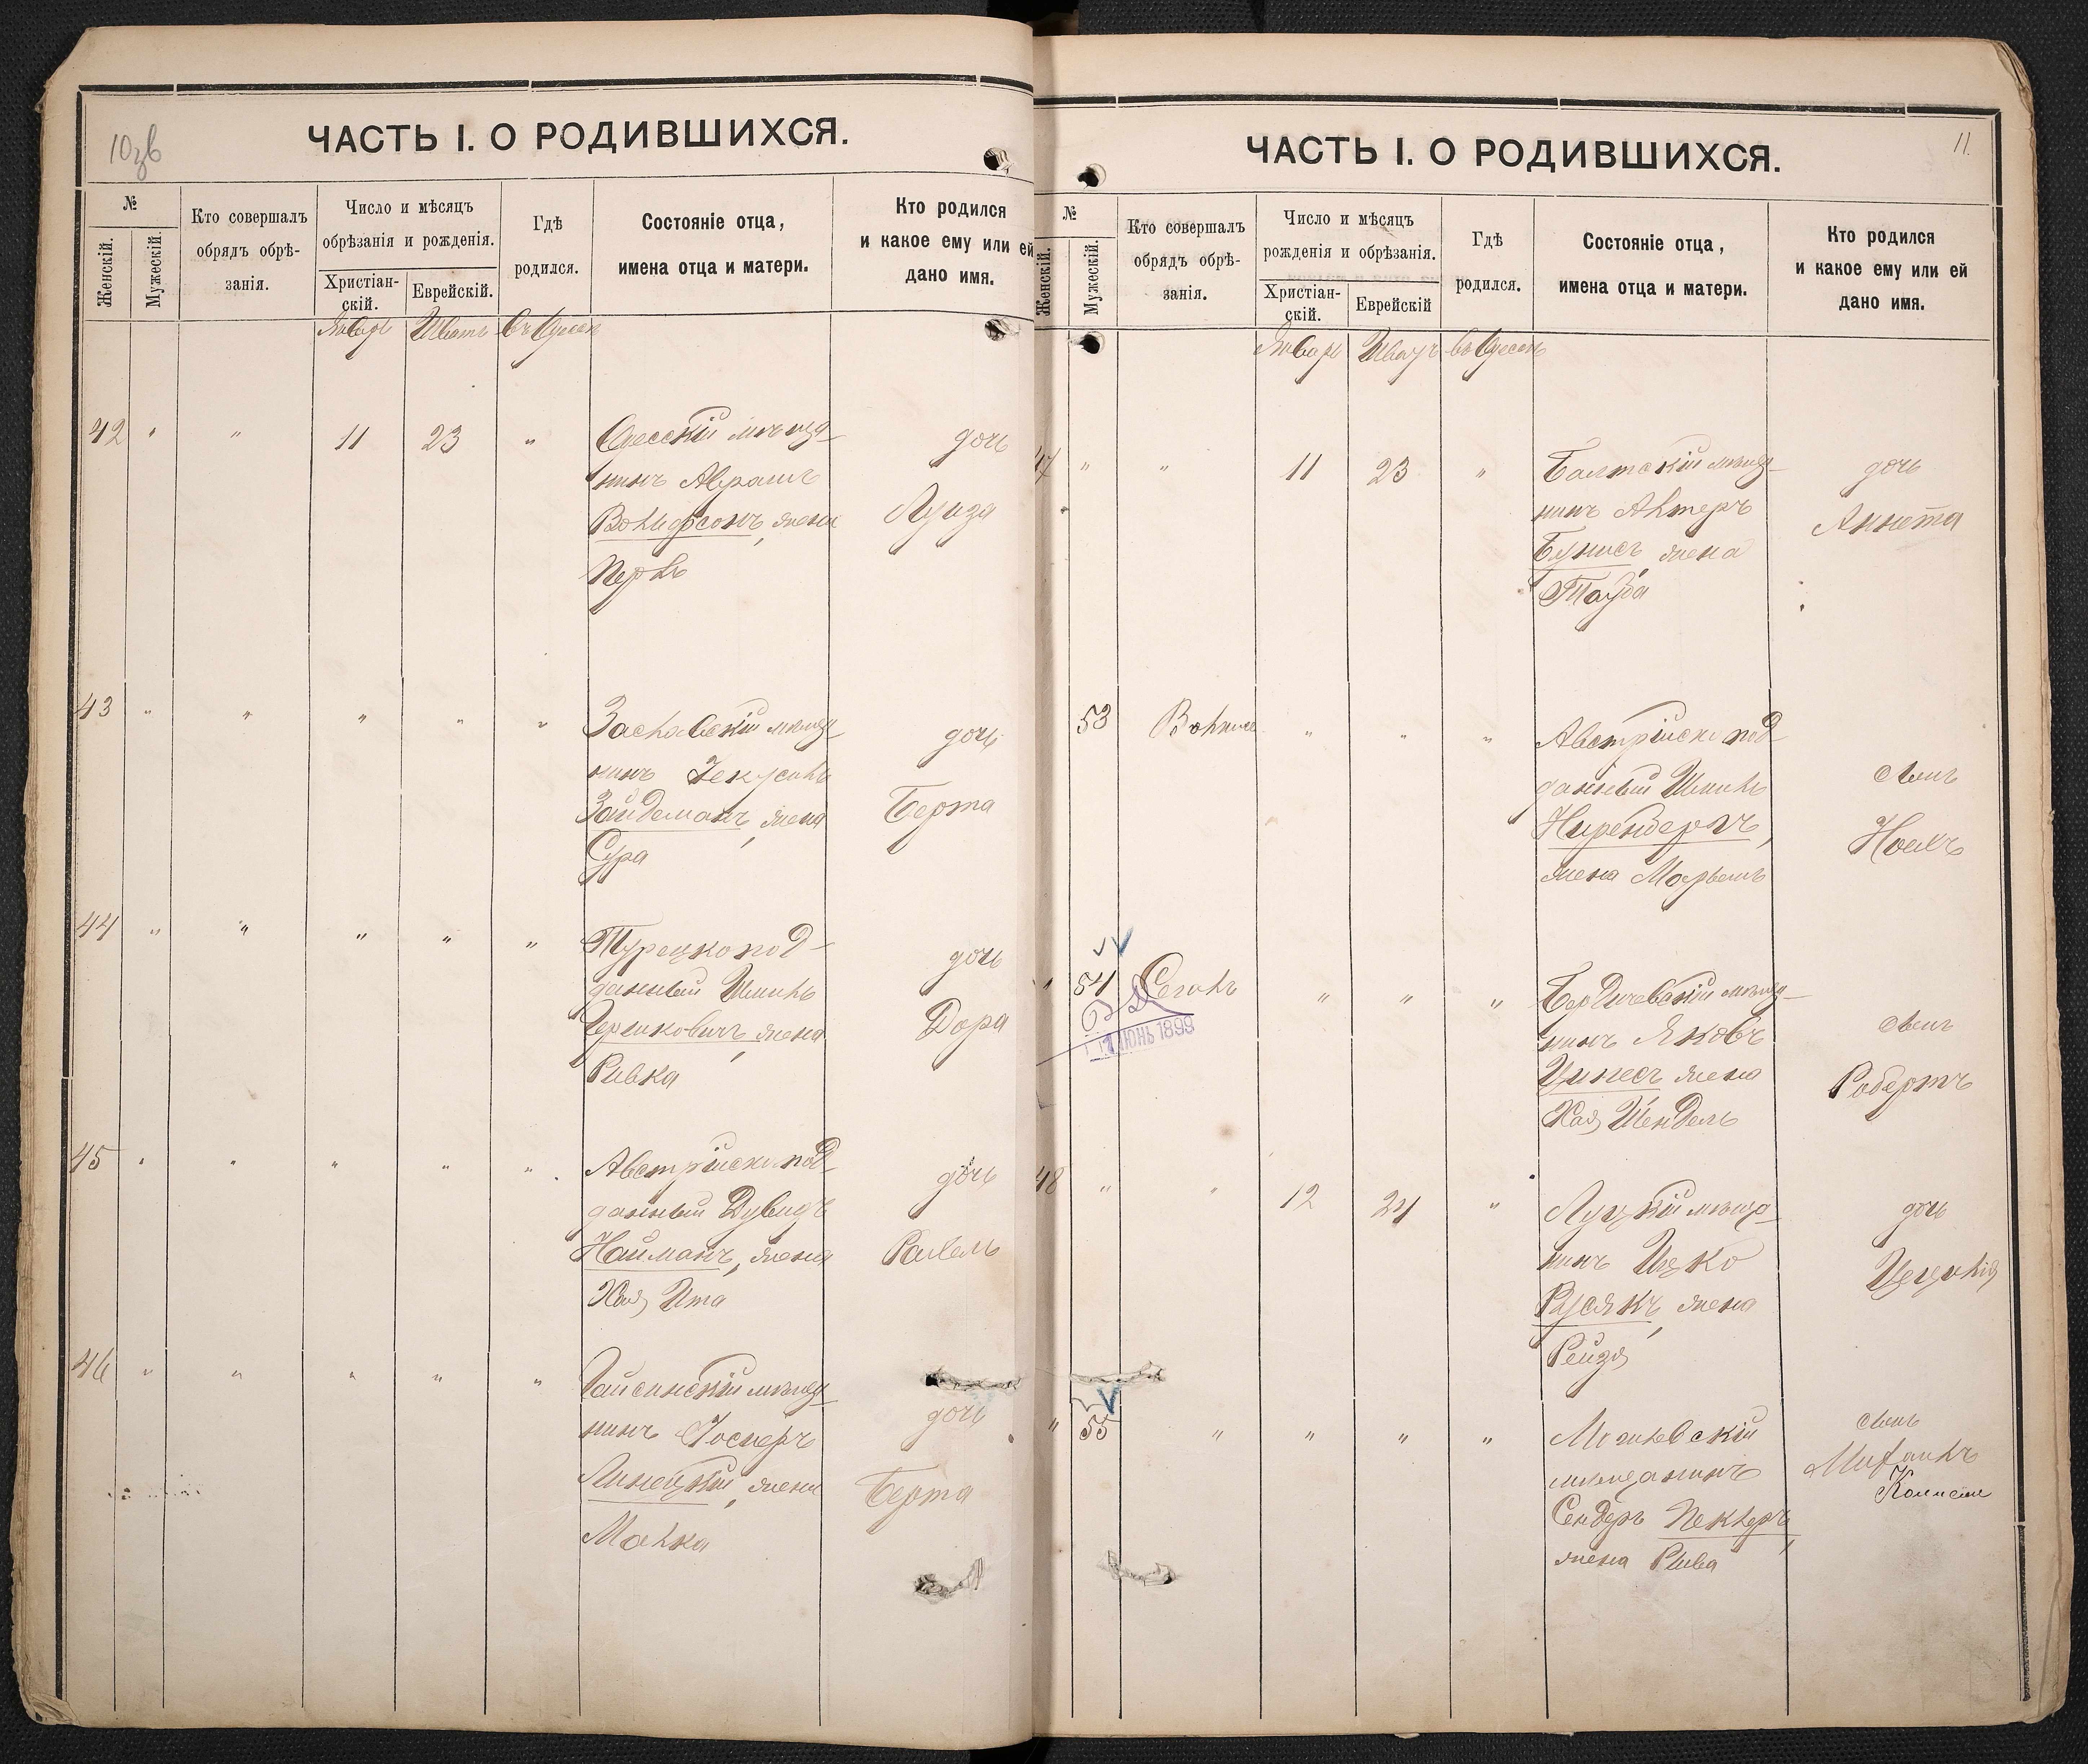 10зв
ЧАСТЬ I. О РОДИВШИХСЯ.
№
Женскій.
Мужескій.
Кто совершалъ
обрядъ обрѣ-
занія.
Число и мѣсяцъ
обрѣзанія и рожденія.
Христіан-
скій.
Еврейскій.
Гдѣ
родился.
Состояніе отца,
имена отца и матери.
Кто родился
и какое ему или ей
дано имя.
Январь Шватъ въ Одессѣ
42 " " 11 23 " Одесскій мѣща-
нинъ Абрамъ
Вольфсонъ, жена
Перль
дочь
Луиза
43 " " " " " Заславскій мѣща-
нинъ Іекусіиль
Зайдеманъ, жена
Сура
дочь
Берта
44 " " " " " Турецкопод-
данный Шмиль
Гершковичъ, жена
Ривка
дочь
Дора
45 " " " " " Австрійскопод-
данный Дувидъ
Найманъ, жена
Хая Ита
дочь
Рахель
46 " " " " " Гайсинскій мѣща-
нинъ
Линецкій, жена
Малка
дочь
Берта
11.
ЧАСТЬ I. О РОДИВШИХСЯ.
№
Женскій.
Мужескій.
Кто совершалъ
обрядъ обрѣ-
занія.
Число и мѣсяцъ
рожденія и обрѣзанія.
Христіан-
скій.
Еврейскій
Гдѣ
родился.
Состояніе отца,
имена отца и матери.
Кто родился
и какое ему или ей
дано имя.
Январь Шватъ въ Одессѣ
47 " " 11 23 " Балтскій мѣща-
нинъ Алтеръ
Бунисъ, жена
Тауба
дочь
Аннета
53 " " " Австрійскопод-
данный Шмиль
Ниренбергъ,
жена Марьемъ
сынъ
" 54 Сегаль " " " Бердичевскій мѣща-
нинъ Яковъ
жена
Хая Шендель
сынъ
Робертъ
ИЮНЬ 1899
48 " " 12 24 " Луцкій мѣща-
нинъ Ицко
Русякъ, жена
Рейзя
дочь
Цецилія
" 55 " " " " Могилевскій
мѣщанинъ
Сендеръ Пеклеръ,
жена Рива
сынъ
Михаилъ